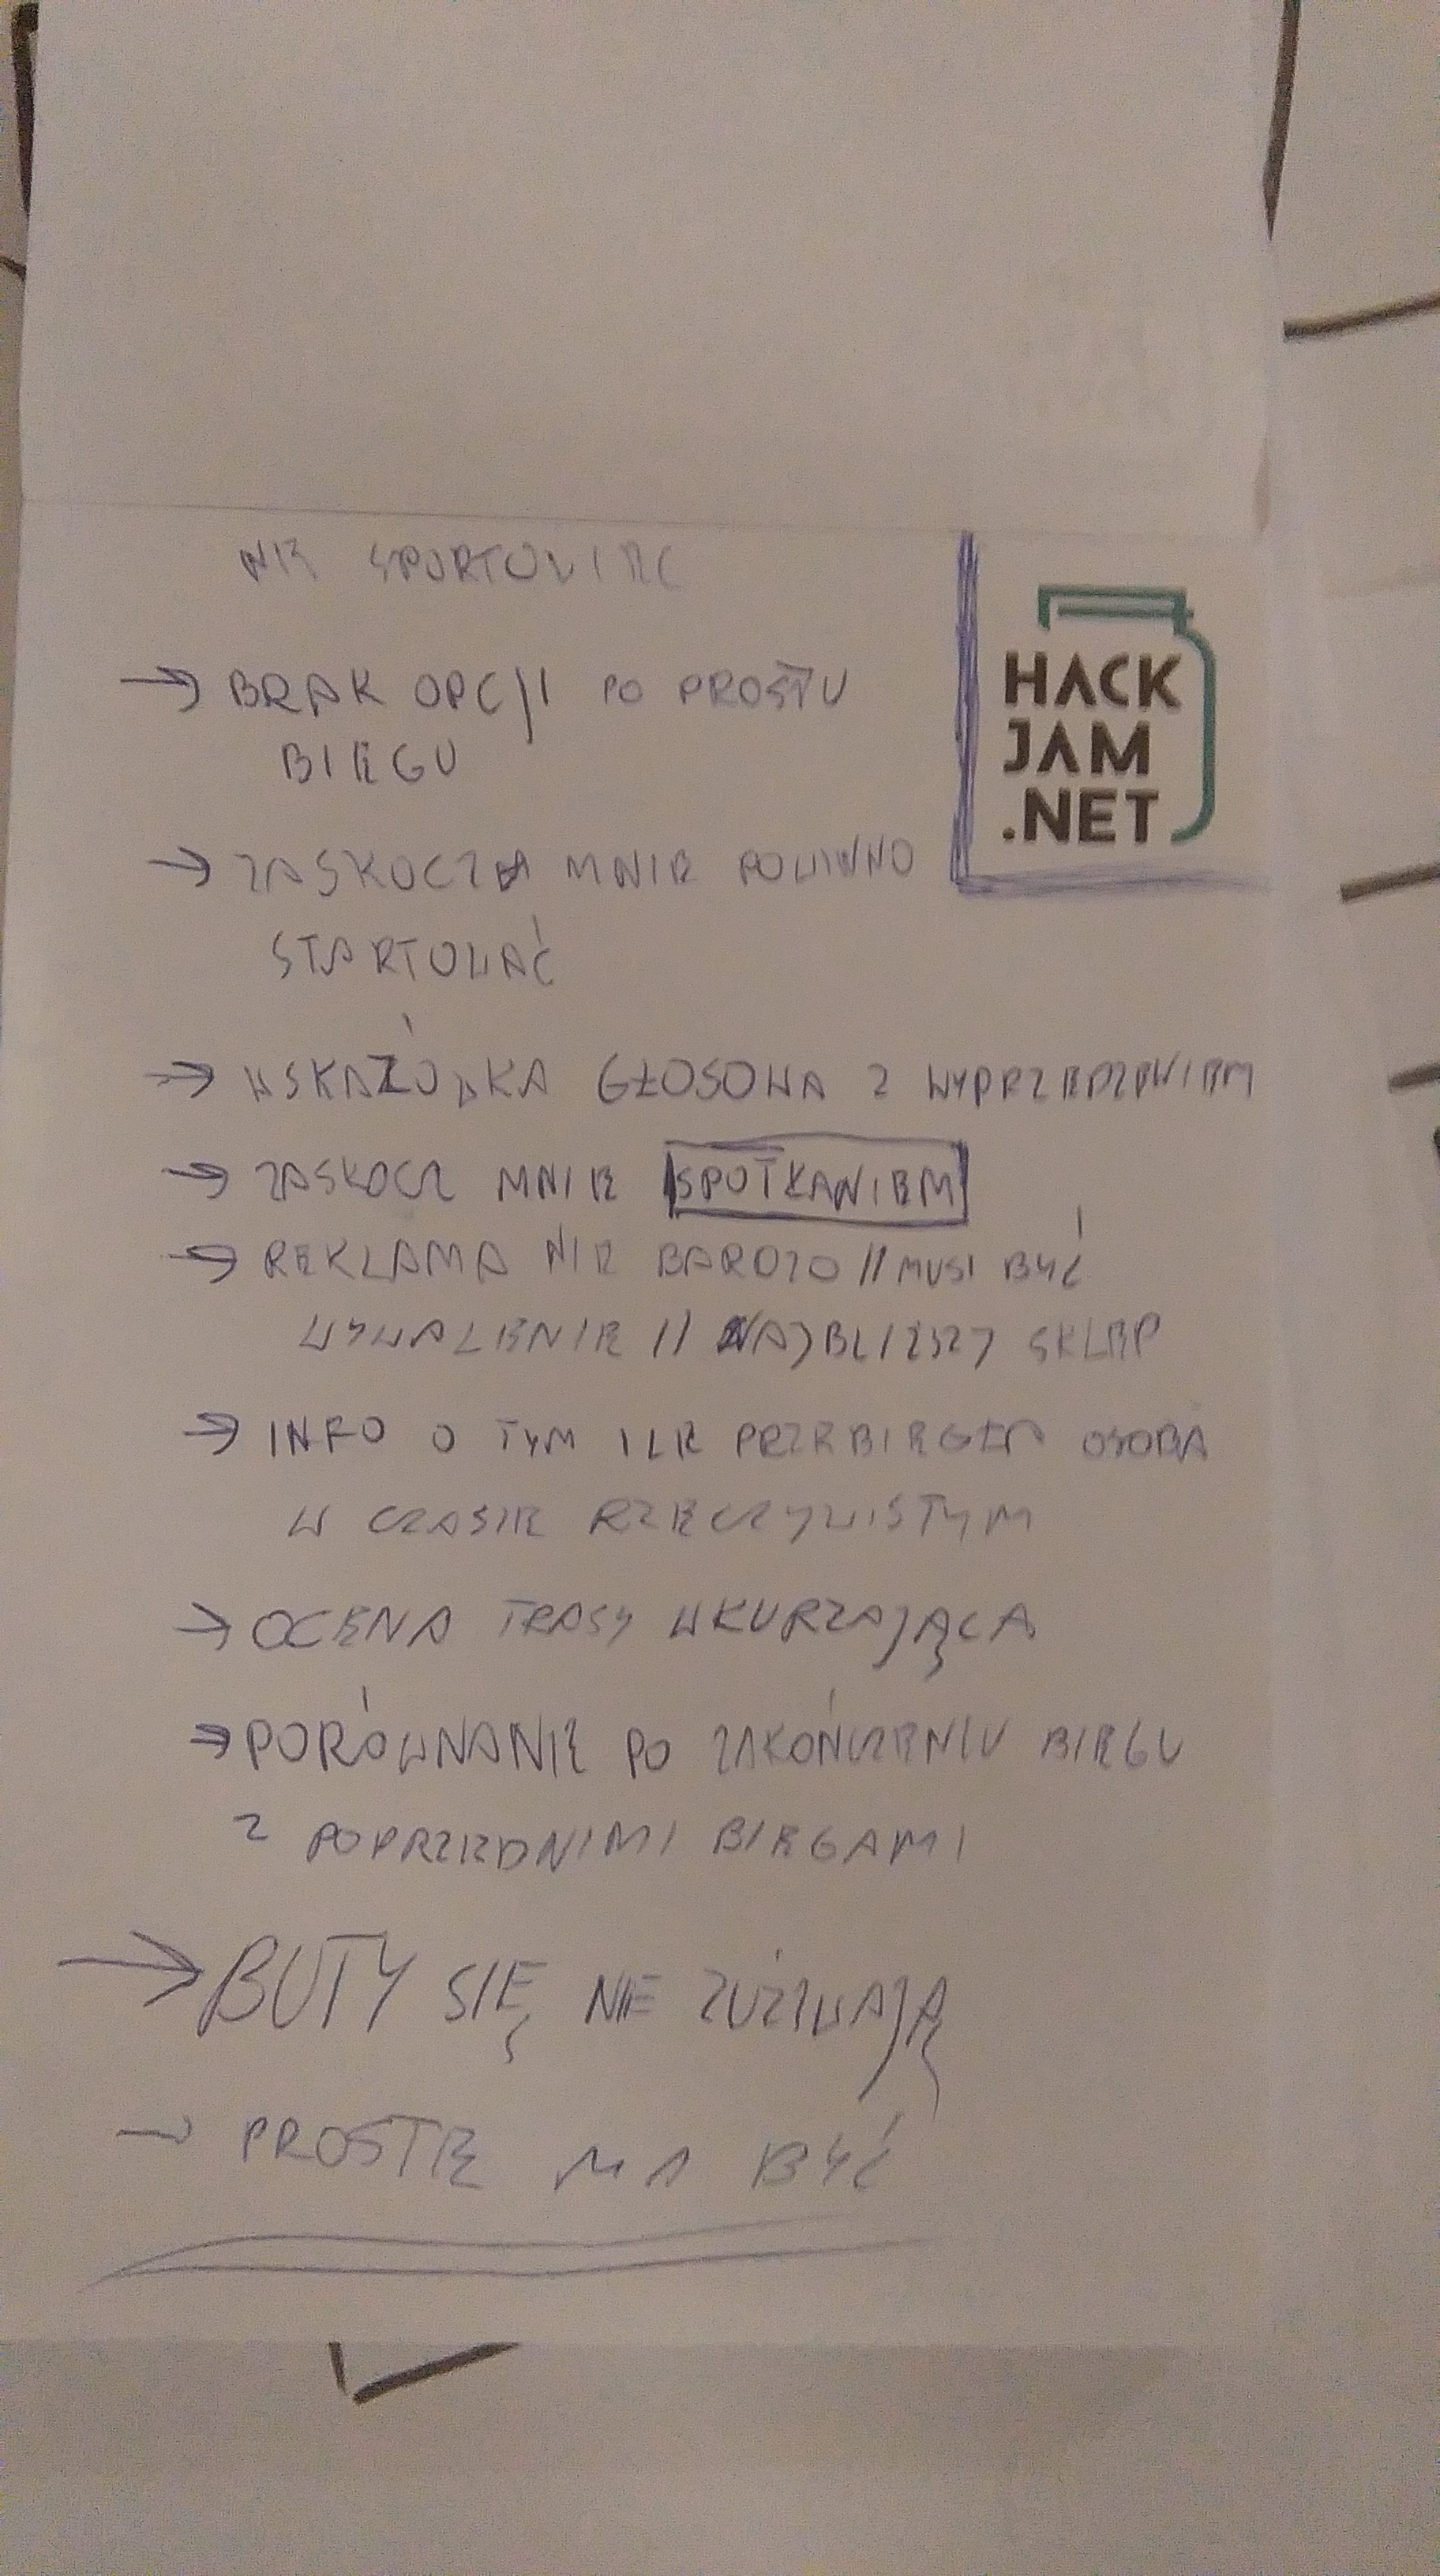 NIE SPORTOWIEC
→ BRAK OPCJI PO PROSTU
BIEGU
HACK
JAM
.NET
→ ZASKOCZ MNIE POWINNO
STARTOWAĆ
→ WSKAZÓWKA GŁOSOWA Z WYPRZEDZENIEM
→ ZASKOCZ MNIE SPOTKANIEM
→ REKLAMA NIE BARDZO // MUSI BYĆ
WYWALENIE // NAJBLIŻSZY SKLEP
→ INFO O TYM ILE PRZEBIEGŁA OSOBA
W CZASIE RZECZYWISTYM
→ OCENA TRASY WKURZAJĄCA
→ PORÓWNANIE PO ZAKOŃCZENIU BIEGU
Z POPRZEDNIMI BIEGAMI
→ BUTY SIĘ NIE ZUŻYWAJĄ
→ PROSTE MA BYĆ